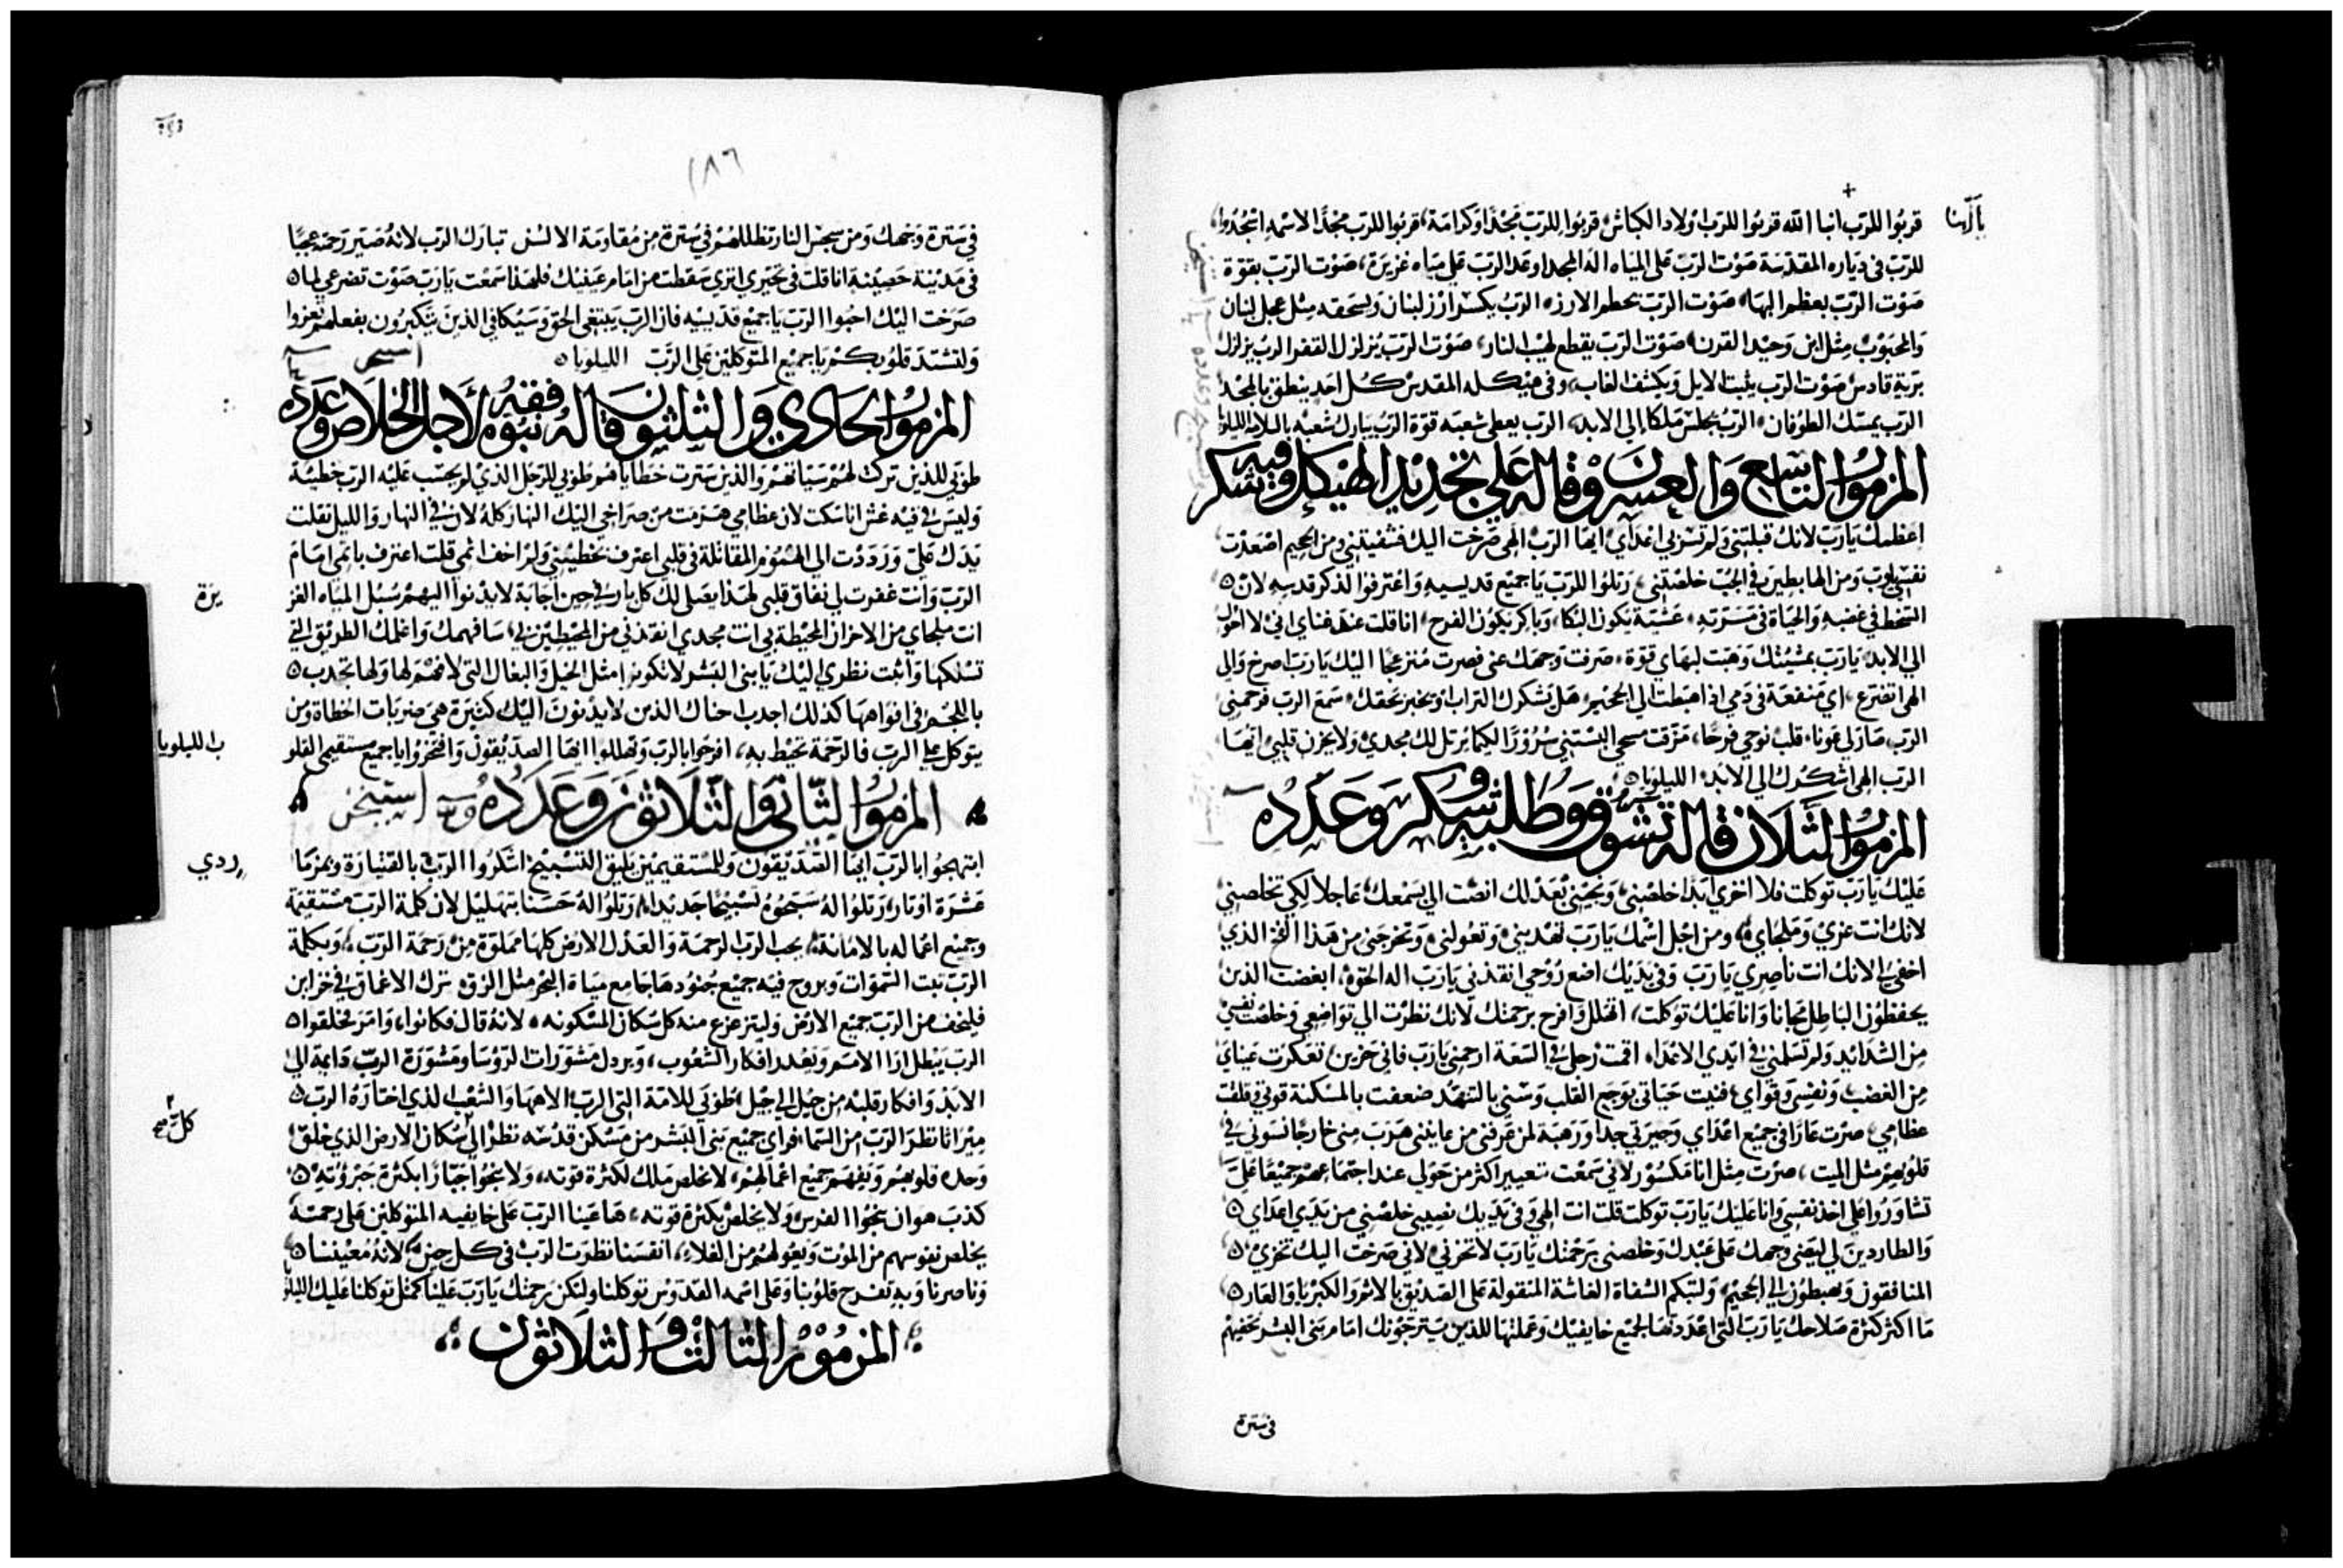 قربوا للرب ابنا الله قربوا للرب اولاد الكباش قربوا للرب مجدا وكرامة قربوا للرب مجدا لاسمه اسجدوا
للرب في دياره المقدسة صوت الرب على المياه اله المجد اوعد الرب على مياه غزيرة صوت الرب بقوة
صوت الرب بعظم البها صوت الرب يحطم الارز الرب يكسر ارز لبنان ويسحقه مثل عجل لبنان
والمحبوب مثل ابن وحيد القرن صوت الرب يقطع لهيب النار صوت الرب يزلزل القفر الرب يزلزل
برية قادس صوت الرب يثبت الايل ويكشف الغاب وفي هيكله المقدس كل احد ينطق بالمجد
الرب يمسك الطوفان الرب يجلس ملكا الى الابد الرب يعطي شعبه قوة الرب يبارك شعبه بالسلامه الليلويا
المزمور التاسع والعشرون وقاله على تجديد الهيكل وفيه شكر
اعظمك يارب لانك قبلتني ولم تسر بي اعداي ايها الرب الهي صرخت اليك فشفيتني ومن الجحيم اصعدت
نفسي يارب ومن الهابطين في الجب خلصتني رتلوا للرب يا جميع قديسيه واعترفوا لذكر قدسه لان
السخط في غضبه والحياة في مسرته عشية يكون البكا وباكر يكون الفرح انا قلت عند غناي اني لا احول
الى الابد يارب بمشيتك وهبت لبهاي قوة صرفت وجهك عني فصرت منزعجا اليك يارب اصرخ والى
الهي اتضرع اي منفعة في دمي اذا هبطت الى الجحيم هل يشكرك التراب او يخبر بحقك سمع الرب فرحمني
الرب صار لي عونا قلب نوحي فرحا مزقت مسحي البستني سرورا لكيما يرتل لك مجدي ولا يحزن قلبي ايها
الرب الهي اشكرك الى الابد الليلويا
المزمور الثلاثون قاله تشوق وطلبه وشكر وعدده
عليك يارب توكلت فلا اخزى ابدا خلصني ونجيني بعدلك انصت الي بسمعك عاجلا لكي تخلصني
لانك انت عزي وملجاي ومن اجل اسمك يارب تهديني وتعولني وتخرجني من هذا الفخ الذي
اخفي لي لانك انت ناصري يارب وفي يديك اضع روحي انقذني يارب اله الحق ابغضت الذين
يحفظون الباطل مجانا وانا عليك توكلت اتهلل وافرح برحمتك لانك نظرت الى تواضعي وخلصت نفسي
من الشدايد ولم تسلمني في ايدي الاعدا اقمت رجلي في السعة ارحمني يارب فاني حزين تعكرت عيناي
من الغضب ونفسي وقواي فنيت حياتي بوجع القلب وسني بالتنهد ضعفت بالمسكنة قوتي وقلقت
عظامي صرت عارا في جميع اعداي وجيرتي جدا ورهبة لمن عرفني من عاينني هرب مني خارجا نسوني في
قلوبهم مثل الميت صرت مثل انا مكسور لاني سمعت تعيير اكثر من حولي عند اجتماعهم جميعا علي
تشاوروا على اخذ نفسي وانا عليك يارب توكلت قلت انت الهي وفي يديك نصيبي خلصني من يدي اعداي
والطاردين لي ليضي وجهك على عبدك وخلصني برحمتك يارب لا تخزني لاني صرخت اليك تخزى
المنافقون ويهبطون الى الجحيم ولتبكم الشفاة الغاشة المتقولة على الصديق بالاثم والكبريا والعار
ما اكثر كثرة صلاحك يارب التي اعددتها لجميع خايفيك وعملتها للذين يترجونك امام بني البشر تخفيهم
في سترة
١٨٦
في سترة وجهك ومن سجس النار تظللهم في سترة من مقاومة الالسن تبارك الرب لانه صير رحمته عجبا
في مدينة حصينة انا قلت في تحيري اتري سقطت من امام عينيك فلهذا سمعت يارب صوت تضرعي لما
صرخت اليك احبوا الرب يا جميع قديسيه فان الرب يبتغي الحق وسيكافي الذين يتكبرون بفعلهم تعزوا
ولتشتد قلوبكم يا جميع المتوكلين على الرب الليلويا
المزمور الحادي والثلثون قاله نبوه فقهه لاجل الخلاص وعدده
طوبى للذين تركت لهم سياتهم والذين سترت خطاياهم طوبى للرجل الذي لم يحسب عليه الرب خطيئة
وليس في فيه غش انا سكت لان عظامي هرمت من صراخي اليك النهار كله لان في النهار والليل ثقلت
يدك علي ورددت الى الهموم القاتلة في قلبي اعترف بخطيئتي ولم اخف اثمي قلت اعترف باثمي امام
الرب وانت غفرت لي نفاق قلبي لهذا يصلي لك كل بار في حين اجابة لا يدنوا اليهم سبل المياه الغز
يرة
انت ملجاي من الاحزان المحيطة بي انت مجدي انقذني من المحيطين بي سافهمك واعلمك الطريق التي
تسلكها واثبت نظري اليك يا بني البشر لا تكونوا مثل الخيل والبغال التي لا فهم لها ولها تجدب
باللجم في افواهها كذلك اجدب احناك الذين لا يدنون اليك كثيرة هي ضربات الخطاة ومن
يتوكل على الرب فالرحمة تحيط به افرحوا بالرب وتهللوا ايها الصديقون وافتخروا يا جميع مستقيمي القلو
ب الليلويا
المزمور الثاني والثلاثون وعدده
ابتهجوا بالرب ايها الصديقون وللمستقيمين يليق التسبيح اشكروا الرب بالقيثارة وبمزما
ر ذي
عشرة اوتار رتلوا له سبحوه تسبيحا جديدا رتلوا له حسنا بتهليل لان كلمة الرب مستقيمة
وجميع اعماله بالامانة يحب الرب الرحمة والعدل الارض كلها مملوة من رحمة الرب وبكلمة
الرب ثبت السموات وبروح فيه جميع جنودها جامع مياة البحر مثل الزق ترك الاعماق في خزاين
فليخف من الرب جميع الارض وليتزعزع منه كل سكان المسكونه لانه قال فكانوا وامر فخلقوا
الرب يبطل ارا الامم ويعدد افكار الشعوب ويردل مشورات الروسا ومشورة الرب دايمة الى
الابد وافكار قلبه من جيل الى جيل طوبى للامة التي الرب الاهها والشعب الذي اختاره الرب
ميراثا نظر الرب من السما فراى جميع بني البشر من مسكن قدسه نظر الى سكان الارض الذي خلق
كل صح
وحده قلوبهم ويفهم جميع اعمالهم لا يخلص ملك لكثرة قوته ولا ينجوا جبارا بكثرة جبروته
كذب هو ان ينجوا الفرس ولا يخلص بكثرة قوته ها عينا الرب على خايفيه المتوكلين على رحمته
يخلص نفوسهم من الموت ويعولهم من الغلاء انفسنا نظرت الرب في كل حين لانه معيننا
وناصرنا وبه تفرح قلوبنا وعلى اسمه القدوس توكلنا ولتكن رحمتك يارب علينا كمثل توكلنا عليك الليلو
المزمور الثالث والثلاثون